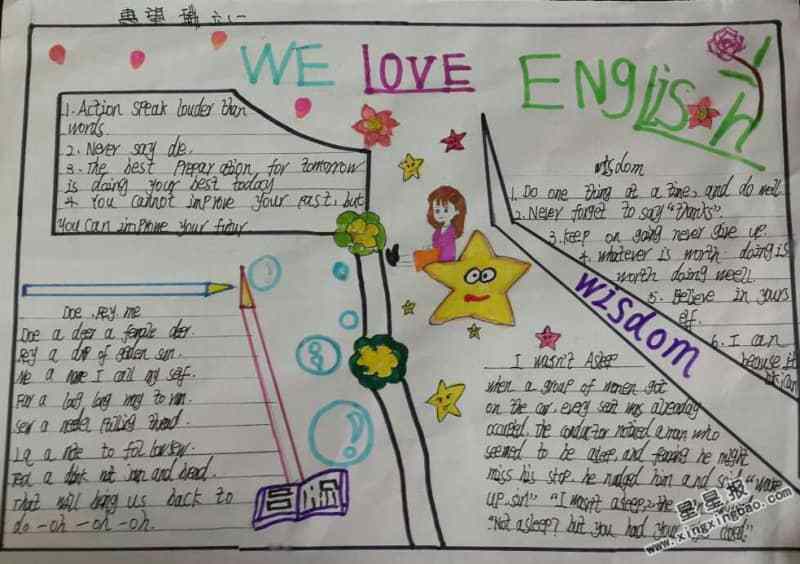 WE LOVE ENGLISH
1. Action speak louder than
words
2. Never say die.
3. The best preparation for tomorrow
is doing your best today
4. You cannot improve your past, but
you can improve your futur
wisdom
1. Do one thing at a time, and do well
2. Never forget to say "thanks".
3. keep on going never give up.
4. whatever is worth doing is
worth doing weell.
5. Believe in yours
elf.
6. I can
because
wisdom
Doe, Rey, me
Doe a deer a female deer.
Rey a drop of golden sun.
Me a name I call my self.
Far a long long way to run.
Sew a needle pulling thread.
La a note to follow sew.
Tea a drink with and bread.
That will bring us back to
do-oh-oh-oh.
I wasn't Asleep
when a group of women got
on the car, every seat was already
occupied. The conductor noticed a man who
seemed to be asleep, and fearing he might
miss his stop, he nudged him and said "wake
up, sir!" "I wasn't asleep," the
"Not asleep? but you had your closed."
星星报
www.xingxingbao.com